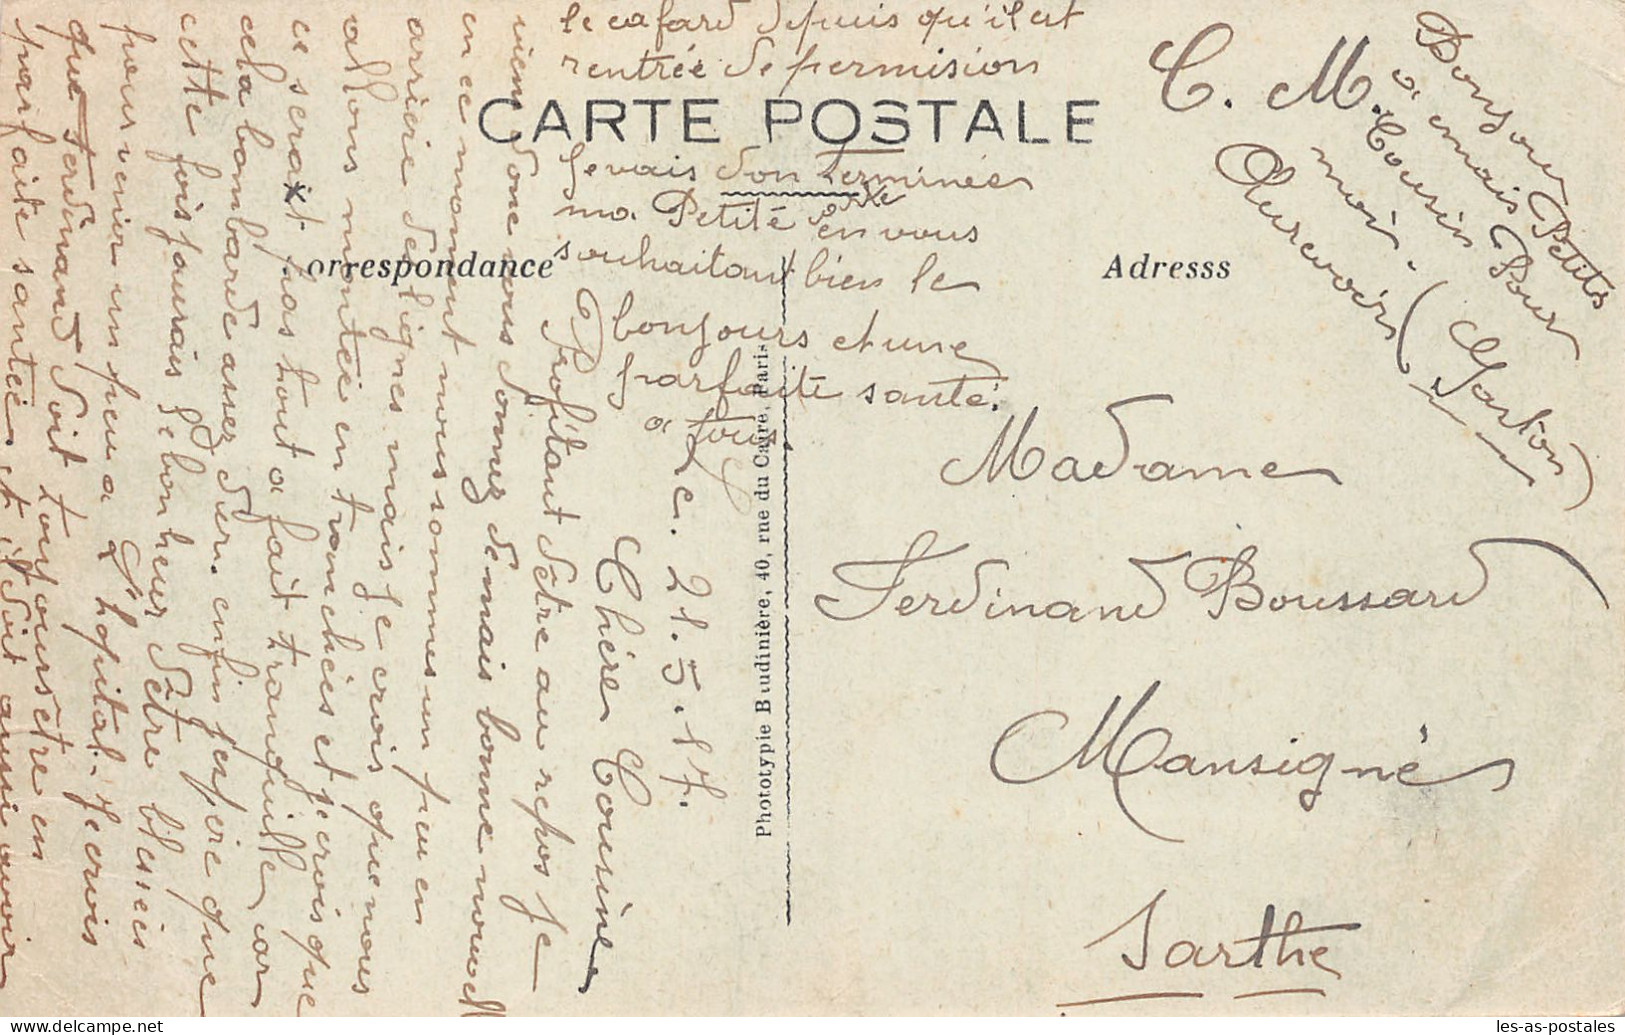 Le. 21.5.17.
Chère Cousine
Profitant d'être au repos je
viens donc vous donnez de mais bonne nouvell
en ce moment nous sommes un peu en
arrière de lignes mais je crois que nous
allons montée en tranchées et je crois que
ce serait pas tout a fait tranquille car
cela bombarde assez dur. enfin j'espère que
cette fois j'aurais le bonheur d'être blessés
pour venir un peu a l'hôpital. je crois
que Ferdinand soit toujours être en
parfaite santée et il doit aussi avoir
le cafard depuis qu'il est
rentrée de permision
CARTE POSTALE
Je vais donc terminée
ma Petite carte en vous
souhaitant bien le
bonjours et une
parfaite santé.
a tous
orrespondance
Adresss
C. M.
Bonjour Petits
a mais Pour
Cousin
moi.
Aurevoir (Marton)
Madame
Ferdinand Boussard
Mansigné
Sarthe
Phototypie Baudinière, 40, rue du Caire, Paris
les-as-postales.com